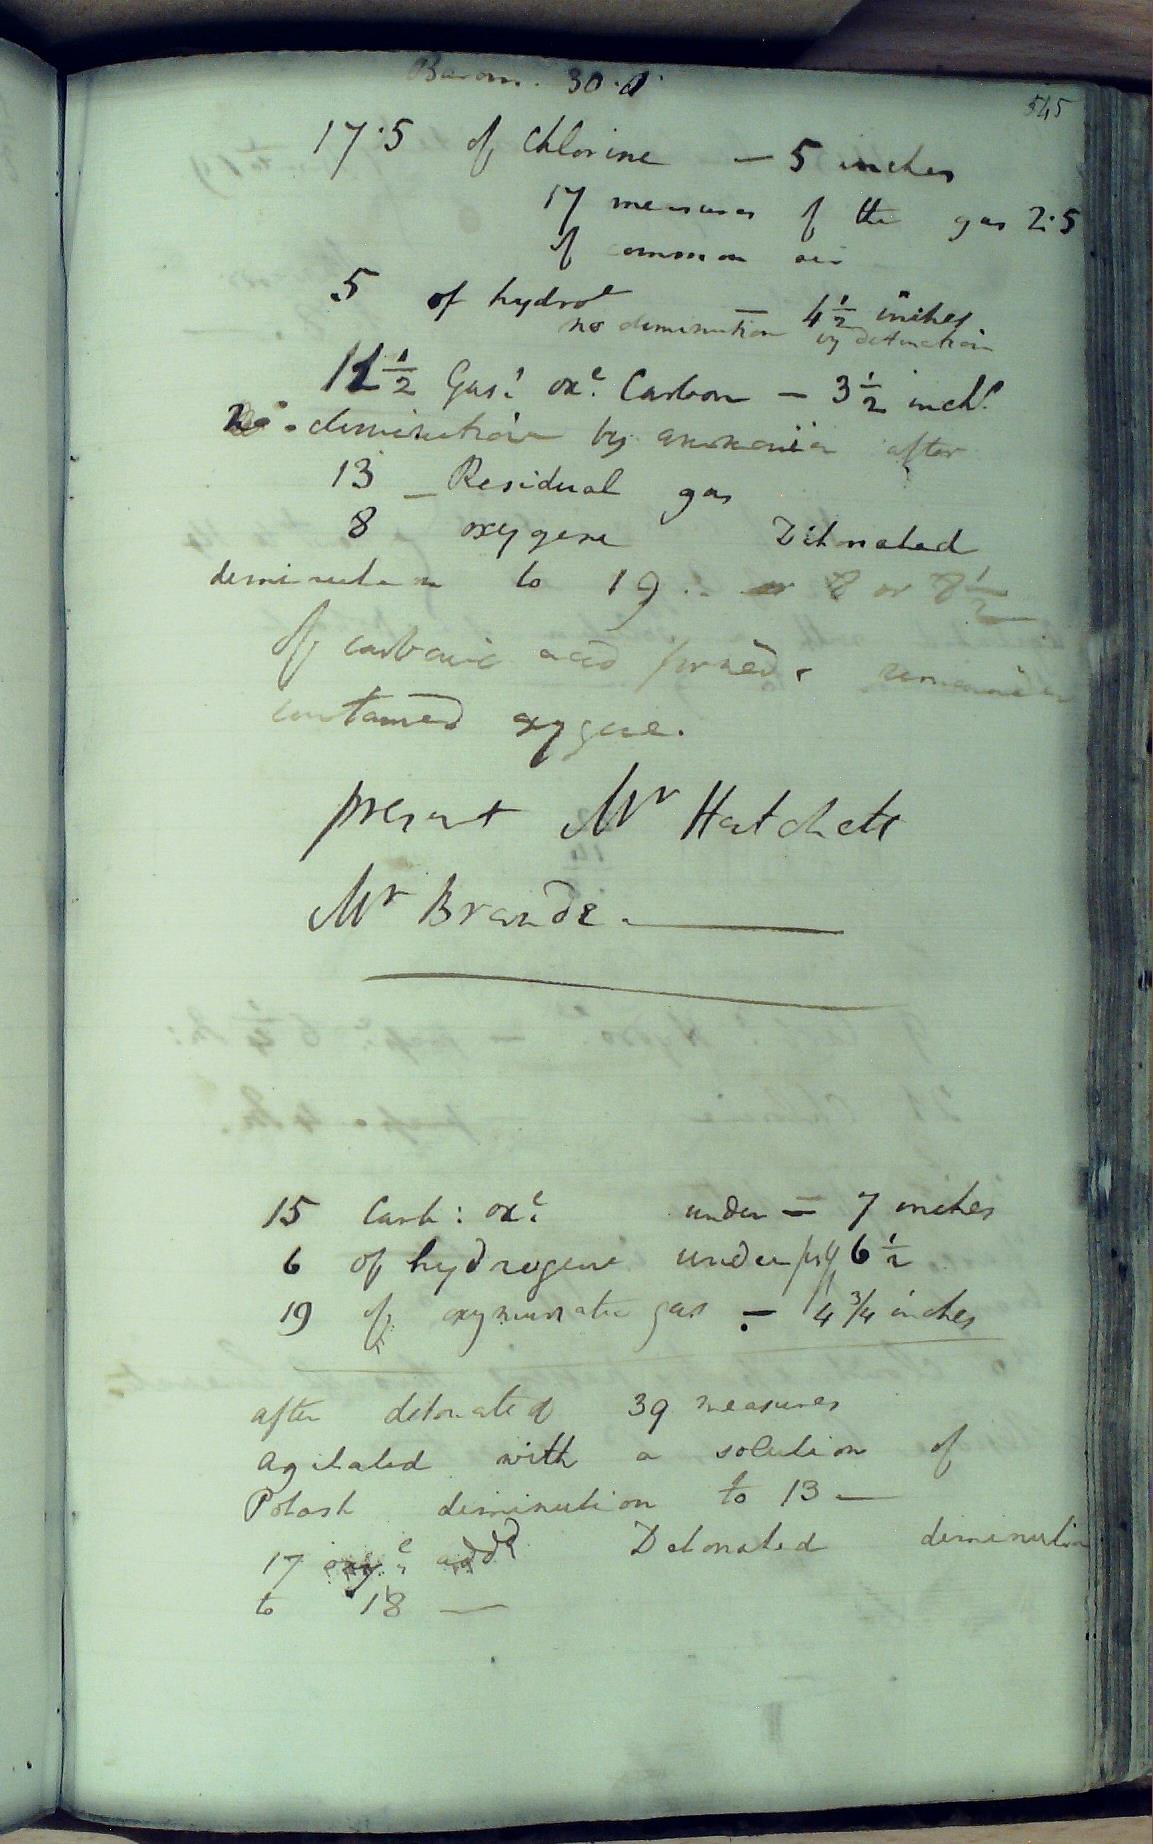 Barom. 30.1
545
17.5 of Chlorine — 5 inches
17 measures of the gas 2.5
of common air
5 of hydro^e — 4 1/2 inches
no diminution by detonation
11 1/2 Gas: ox^e. Carbon — 3 1/2 inch^s
diminution by ammonia after
13 — Residual gas
8 oxygene Detonated
diminution to 19 .. or 8 or 8 1/2
of carbonic acid formed, remainder
contained oxygene.
present Mr Hatchett
Mr Brande. —
15 Carb: ox^e. under = 7 inches
6 of hydrogene under 6 1/2
19 of oxymuriatic gas — 4 3/4 inches
after detonated 39 measures
agitated with a solution of
Potash diminution to 13 —
17 oxy^e. add^d Detonated diminution
to 18 —